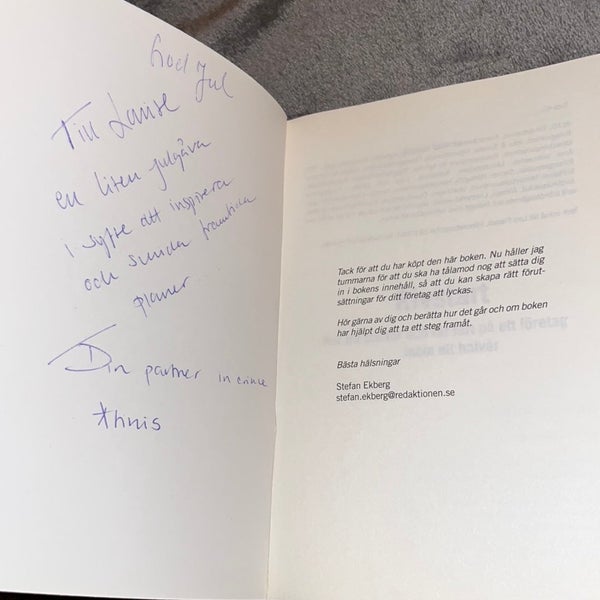 God Jul
Till Louise
en liten julgåva
i syfte att inspirera
och sunda framtida
planer
Din partner in crime
Tack för att du har köpt den här boken. Nu håller jag
tummarna för att du ska ha tålamod nog att sätta dig
in i bokens innehåll, så att du kan skapa rätt förut-
sättningar för ditt företag att lyckas.
Hör gärna av dig och berätta hur det går och om boken
har hjälpt dig att ta ett steg framåt.
Bästa hälsningar
Stefan Ekberg
stefan.ekberg@redaktionen.se